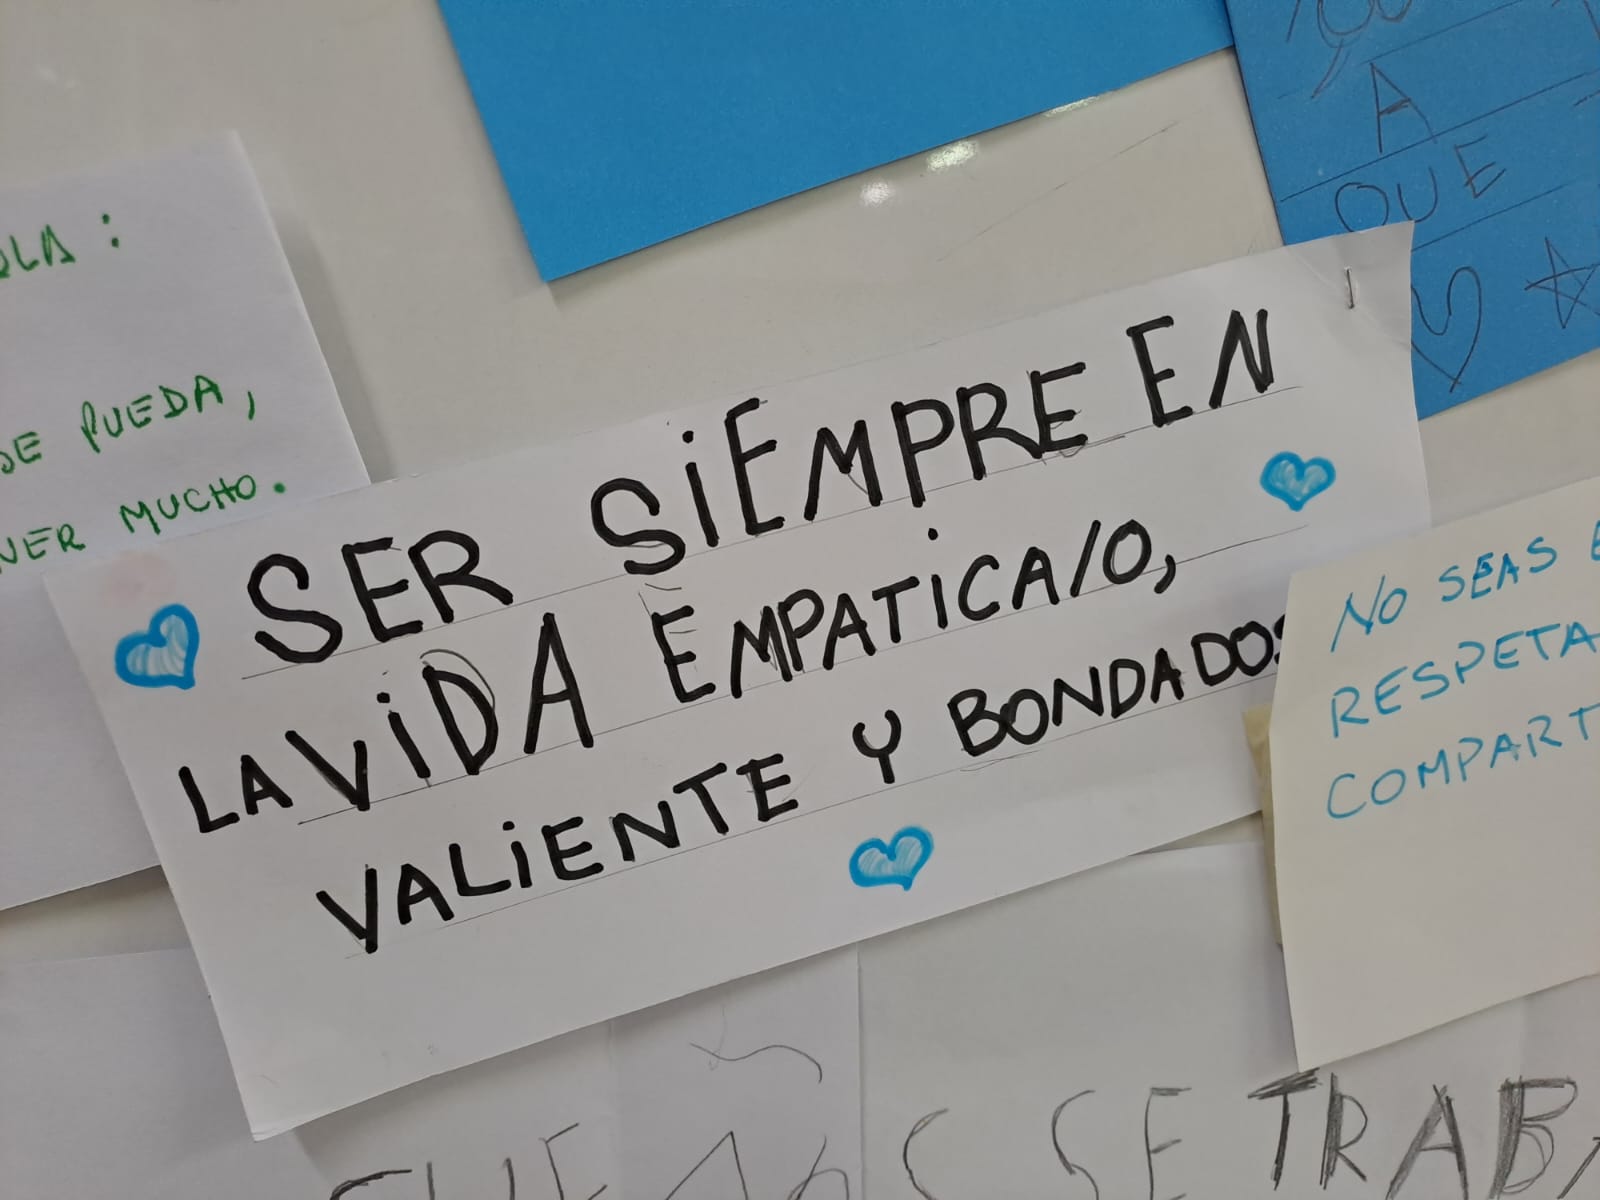 A
QUE
PUEDA,
MUCHO.
SER SIEMPRE EN
LA VIDA EMPATICA/O,
VALIENTE Y BONDADOS
NO SEAS
RESPETA
COMPART
SE TRABA